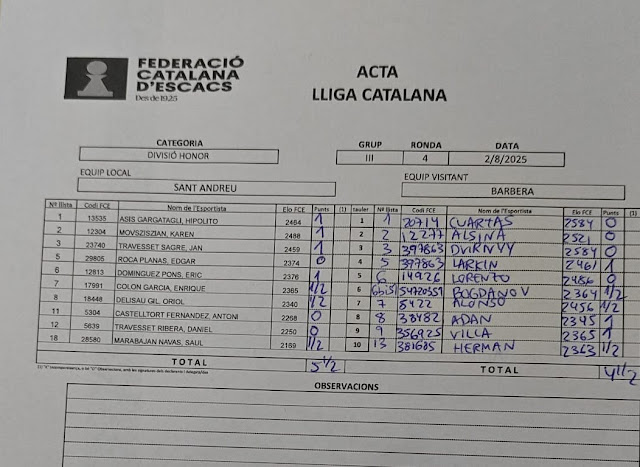 FEDERACIÓ
CATALANA
D'ESCACS
Des de 1925
ACTA
LLIGA CATALANA
CATEGORIA GRUP RONDA DATA
DIVISIÓ HONOR III 4 2/8/2025
EQUIP LOCAL EQUIP VISITANT
SANT ANDREU BARBERA
Nº llista Codi FCE Nom de l'Esportista Elo FCE Punts (1) tauler Nº llista Codi FCE Nom de l'Esportista Elo FCE Punts (1)
1 13535 ASIS GARGATAGLI, HIPOLITO 2484 1 1 1 20714 CUARTAS 2584 0
2 12304 MOVSZISZIAN, KAREN 2488 1 2 2 12277 ALSINA 2521 0
3 23740 TRAVESSET SAGRE, JAN 2459 1 3 3 397863 2584 0
5 29805 ROCA PLANAS, EDGAR 2374 0 4 5 397863 LARKIN 2461 1
6 12813 DOMINGUEZ PONS, ERIC 2376 1 5 6 14926 LORENZO 2486 0
7 17991 COLON GARCIA, ENRIQUE 2365 1/2 6 6bis BOGDANOV 2364 1/2
8 18448 DELISAU GIL, ORIOL 2340 1/2 7 7 5422 ALONSO 2456 1/2
11 5304 CASTELLTORT FERNANDEZ, ANTONI 2268 0 8 8 38482 ADAN 2345 1
12 5639 TRAVESSET RIBERA, DANIEL 2250 0 9 9 356925 VILLA 2365 1
18 28580 MARABAJAN NAVAS, SAUL 2169 1/2 10 13 381685 HERMAN 2363 1/2
TOTAL 5 1/2 TOTAL 4 1/2
OBSERVACIONS